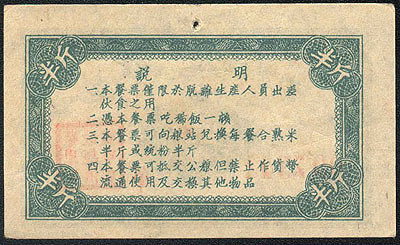 半斤
半斤
說明
一.本餐票僅限於脫離生產人員出差
伙食之用
二.憑本餐票吃稀飯一頓
三.本餐票可向粮站兌換每餐合熟米
半斤或統粉半斤
四.本餐票可抵交公粮但禁止作貨幣
流通使用及交換其他物品
半斤
半斤